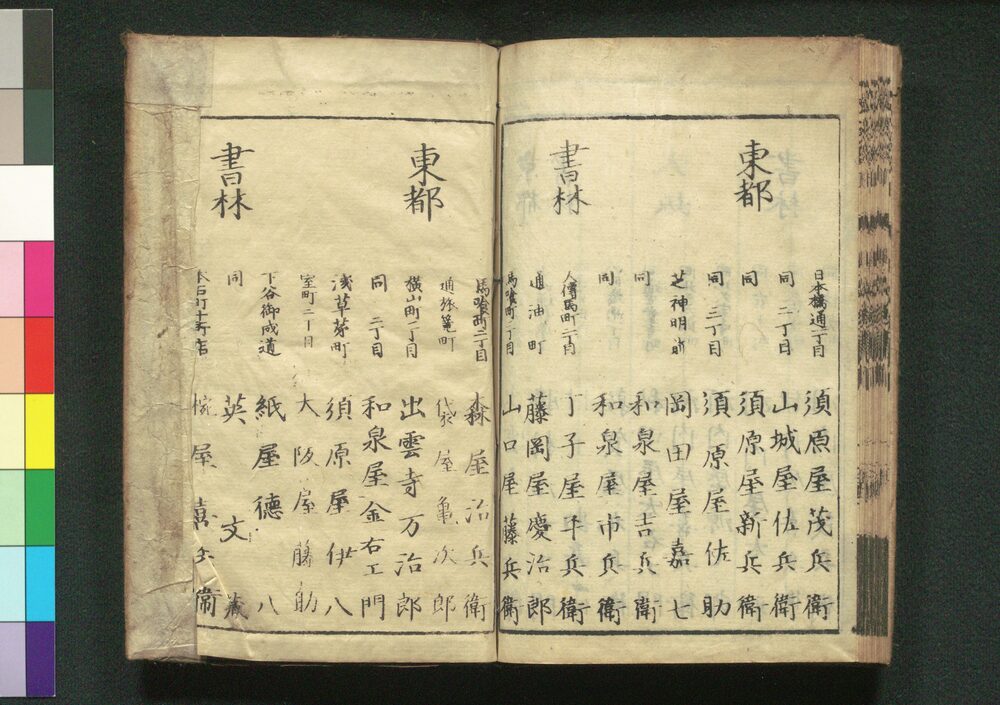 東都
書林
日本橋通一丁目 須原屋茂兵衛
同 二丁目 山城屋佐兵衛
同 須原屋新兵衛
同 三丁目 須原屋佐助
芝神明前 岡田屋嘉七
同 和泉屋吉兵衛
同 和泉屋市兵衛
大傳馬町二丁目 丁子屋平兵衛
通油町 藤岡屋慶治郎
馬喰町二丁目 山口屋藤兵衛
東都
書林
馬喰町二丁目 森屋治兵衛
通旅篭町 袋屋亀次郎
横山町一丁目 出雲寺万治郎
同 二丁目 和泉屋金右エ門
浅草茅町 須原屋伊八
室町二丁目 大阪屋藤助
下谷御成道 紙屋徳八
同 英文蔵
本石町十軒店 椀屋喜兵衛